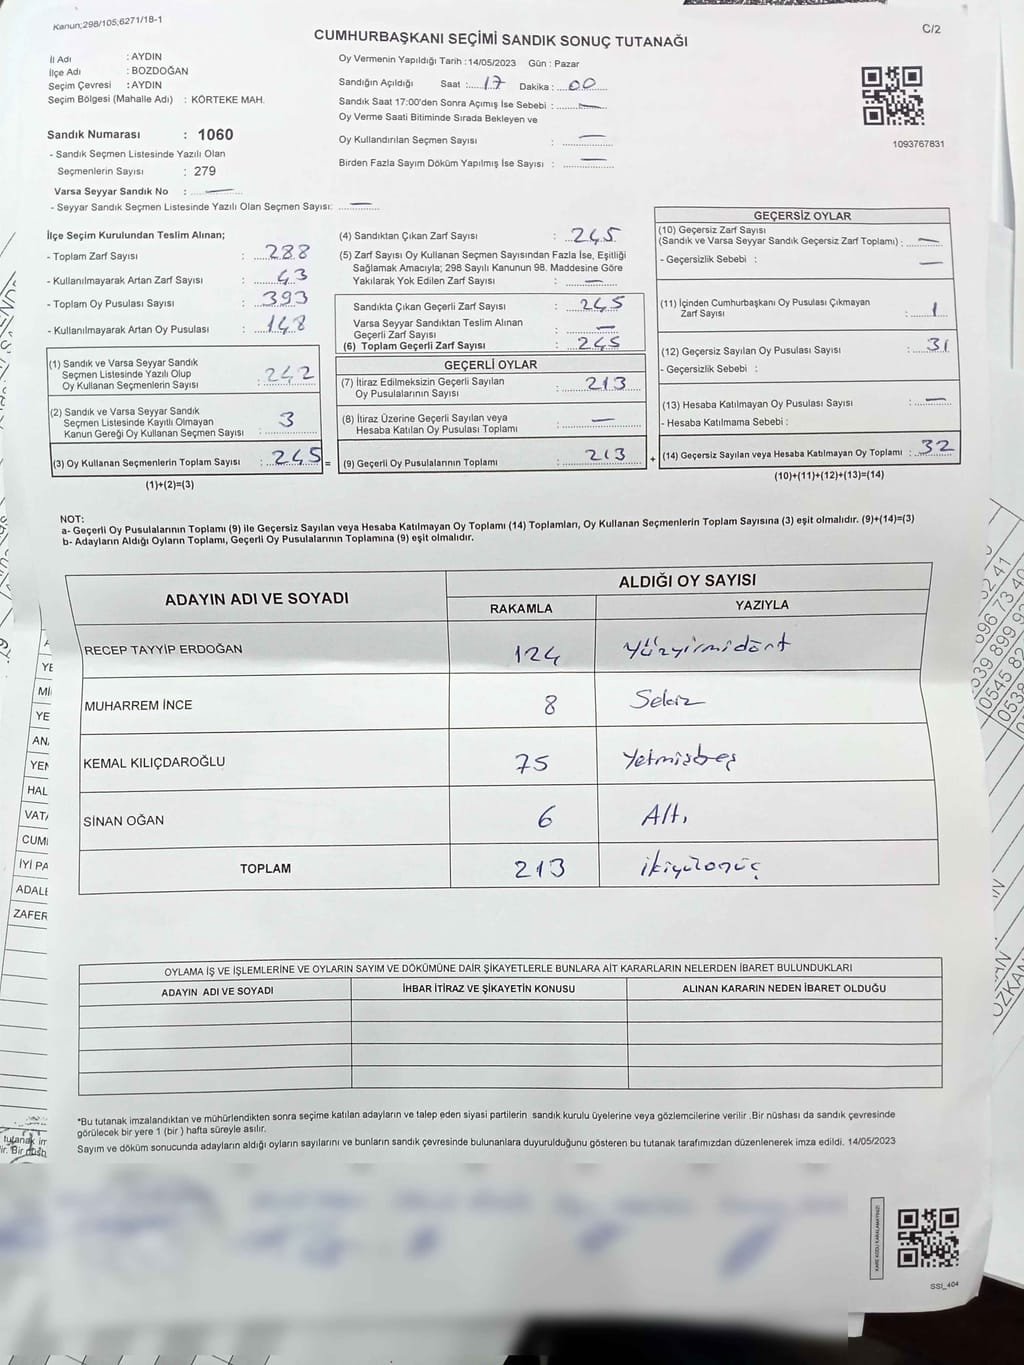 Kanun;298/105;6271/18-1
C/2
CUMHURBAŞKANI SEÇİMİ SANDIK SONUÇ TUTANAĞI
İl Adı : AYDIN
İlçe Adı : BOZDOĞAN
Seçim Çevresi : AYDIN
Seçim Bölgesi (Mahalle Adı) : KÖRTEKE MAH.
Sandık Numarası : 1060
- Sandık Seçmen Listesinde Yazılı Olan
Seçmenlerin Sayısı : 279
Varsa Seyyar Sandık No : —
- Seyyar Sandık Seçmen Listesinde Yazılı Olan Seçmen Sayısı: —
Oy Vermenin Yapıldığı Tarih : 14/05/2023 Gün : Pazar
Sandığın Açıldığı Saat : 17 Dakika : 00
Sandık Saat 17:00'den Sonra Açımış İse Sebebi : —
Oy Verme Saati Bitiminde Sırada Bekleyen ve
Oy Kullandırılan Seçmen Sayısı : —
Birden Fazla Sayım Döküm Yapılmış İse Sayısı : —
1093767831
İlçe Seçim Kurulundan Teslim Alınan;
- Toplam Zarf Sayısı : 288
- Kullanılmayarak Artan Zarf Sayısı : 43
- Toplam Oy Pusulası Sayısı : 393
- Kullanılmayarak Artan Oy Pusulası : 148
(1) Sandık ve Varsa Seyyar Sandık
Seçmen Listesinde Yazılı Olup
Oy Kullanan Seçmenlerin Sayısı : 242
(2) Sandık ve Varsa Seyyar Sandık
Seçmen Listesinde Kayıtlı Olmayan
Kanun Gereği Oy Kullanan Seçmen Sayısı : 3
(3) Oy Kullanan Seçmenlerin Toplam Sayısı : 245 =
(1)+(2)=(3)
(4) Sandıktan Çıkan Zarf Sayısı : 245
(5) Zarf Sayısı Oy Kullanan Seçmen Sayısından Fazla İse, Eşitliği
Sağlamak Amacıyla; 298 Sayılı Kanunun 98. Maddesine Göre
Yakılarak Yok Edilen Zarf Sayısı : —
Sandıkta Çıkan Geçerli Zarf Sayısı : 245
Varsa Seyyar Sandıktan Teslim Alınan
Geçerli Zarf Sayısı : —
(6) Toplam Geçerli Zarf Sayısı : 245
GEÇERLİ OYLAR
(7) İtiraz Edilmeksizin Geçerli Sayılan
Oy Pusulasının Sayısı : 213
(8) İtiraz Üzerine Geçerli Sayılan veya
Hesaba Katılan Oy Pusulası Toplamı : —
(9) Geçerli Oy Pusulalarının Toplamı : 213 +
GEÇERSİZ OYLAR
(10) Geçersiz Zarf Sayısı
(Sandık ve Varsa Seyyar Sandık Geçersiz Zarf Toplamı) : —
- Geçersizlik Sebebi : —
(11) İçinden Cumhurbaşkanı Oy Pusulası Çıkmayan
Zarf Sayısı : 1
(12) Geçersiz Sayılan Oy Pusulası Sayısı : 31
- Geçersizlik Sebebi :
(13) Hesaba Katılmayan Oy Pusulası Sayısı : —
- Hesaba Katılmama Sebebi :
(14) Geçersiz Sayılan veya Hesaba Katılmayan Oy Toplamı : 32
(10)+(11)+(12)+(13)=(14)
NOT:
a- Geçerli Oy Pusulalarının Toplamı (9) ile Geçersiz Sayılan veya Hesaba Katılmayan Oy Toplamı (14) Toplamları, Oy Kullanan Seçmenlerin Toplam Sayısına (3) eşit olmalıdır. (9)+(14)=(3)
b- Adayların Aldığı Oyların Toplamı, Geçerli Oy Pusulalarının Toplamına (9) eşit olmalıdır.
ADAYIN ADI VE SOYADI
ALDIĞI OY SAYISI
RAKAMLA YAZIYLA
RECEP TAYYİP ERDOĞAN 124 Yüzyirmidört
MUHARREM İNCE 8 Sekiz
KEMAL KILIÇDAROĞLU 75 Yetmişbeş
SİNAN OĞAN 6 Altı
TOPLAM 213 İkiyüzonüç
OYLAMA İŞ VE İŞLEMLERİNE VE OYLARIN SAYIM VE DÖKÜMÜNE DAİR ŞİKAYETLERLE BUNLARA AİT KARARLARIN NELERDEN İBARET BULUNDUKLARI
ADAYIN ADI VE SOYADI İHBAR İTİRAZ VE ŞİKAYETİN KONUSU ALINAN KARARIN NEDEN İBARET OLDUĞU
*Bu tutanak imzalandıktan ve mühürlendikten sonra seçime katılan adayların ve talep eden siyasi partilerin sandık kurulu üyelerine veya gözlemcilerine verilir .Bir nüshası da sandık çevresinde
görülecek bir yere 1 (bir ) hafta süreyle asılır.
Sayım ve döküm sonucunda adayların aldığı oyların sayılarını ve bunların sandık çevresinde bulunanlara duyurulduğunu gösteren bu tutanak tarafımızdan düzenlenerek imza edildi. 14/05/2023
KARE KODU KARALAMAYINIZ!
SSI_404
YE
Mİ
YE
AN
YEN
HAL
VATA
CUM
İYİ PA
ADALE
ZAFER